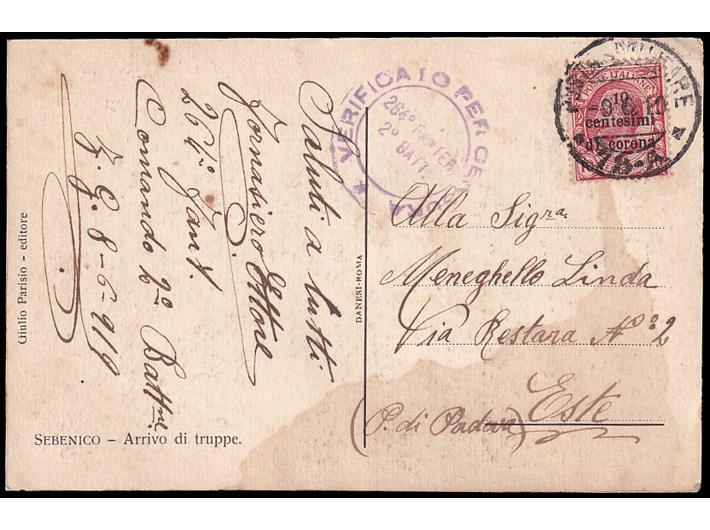 Saluti a tutti
Fornasiero Ettore
264º Fant.
Comando 2º Battne
Z. G. 8-6-919
Giulio Parisio - editore
SEBENICO – Arrivo di truppe.
DANESI-ROMA
VERIFICATO PER CENSURA
264º FANTERIA
2º BATT.
POSTA MILITARE
-9.6.19
78-A
POSTE ITALIANE
10
centesimi
di corona
Alla Sigra.
Meneghello Linda
Via Restara Nº 2
Este
(P. di Padova)